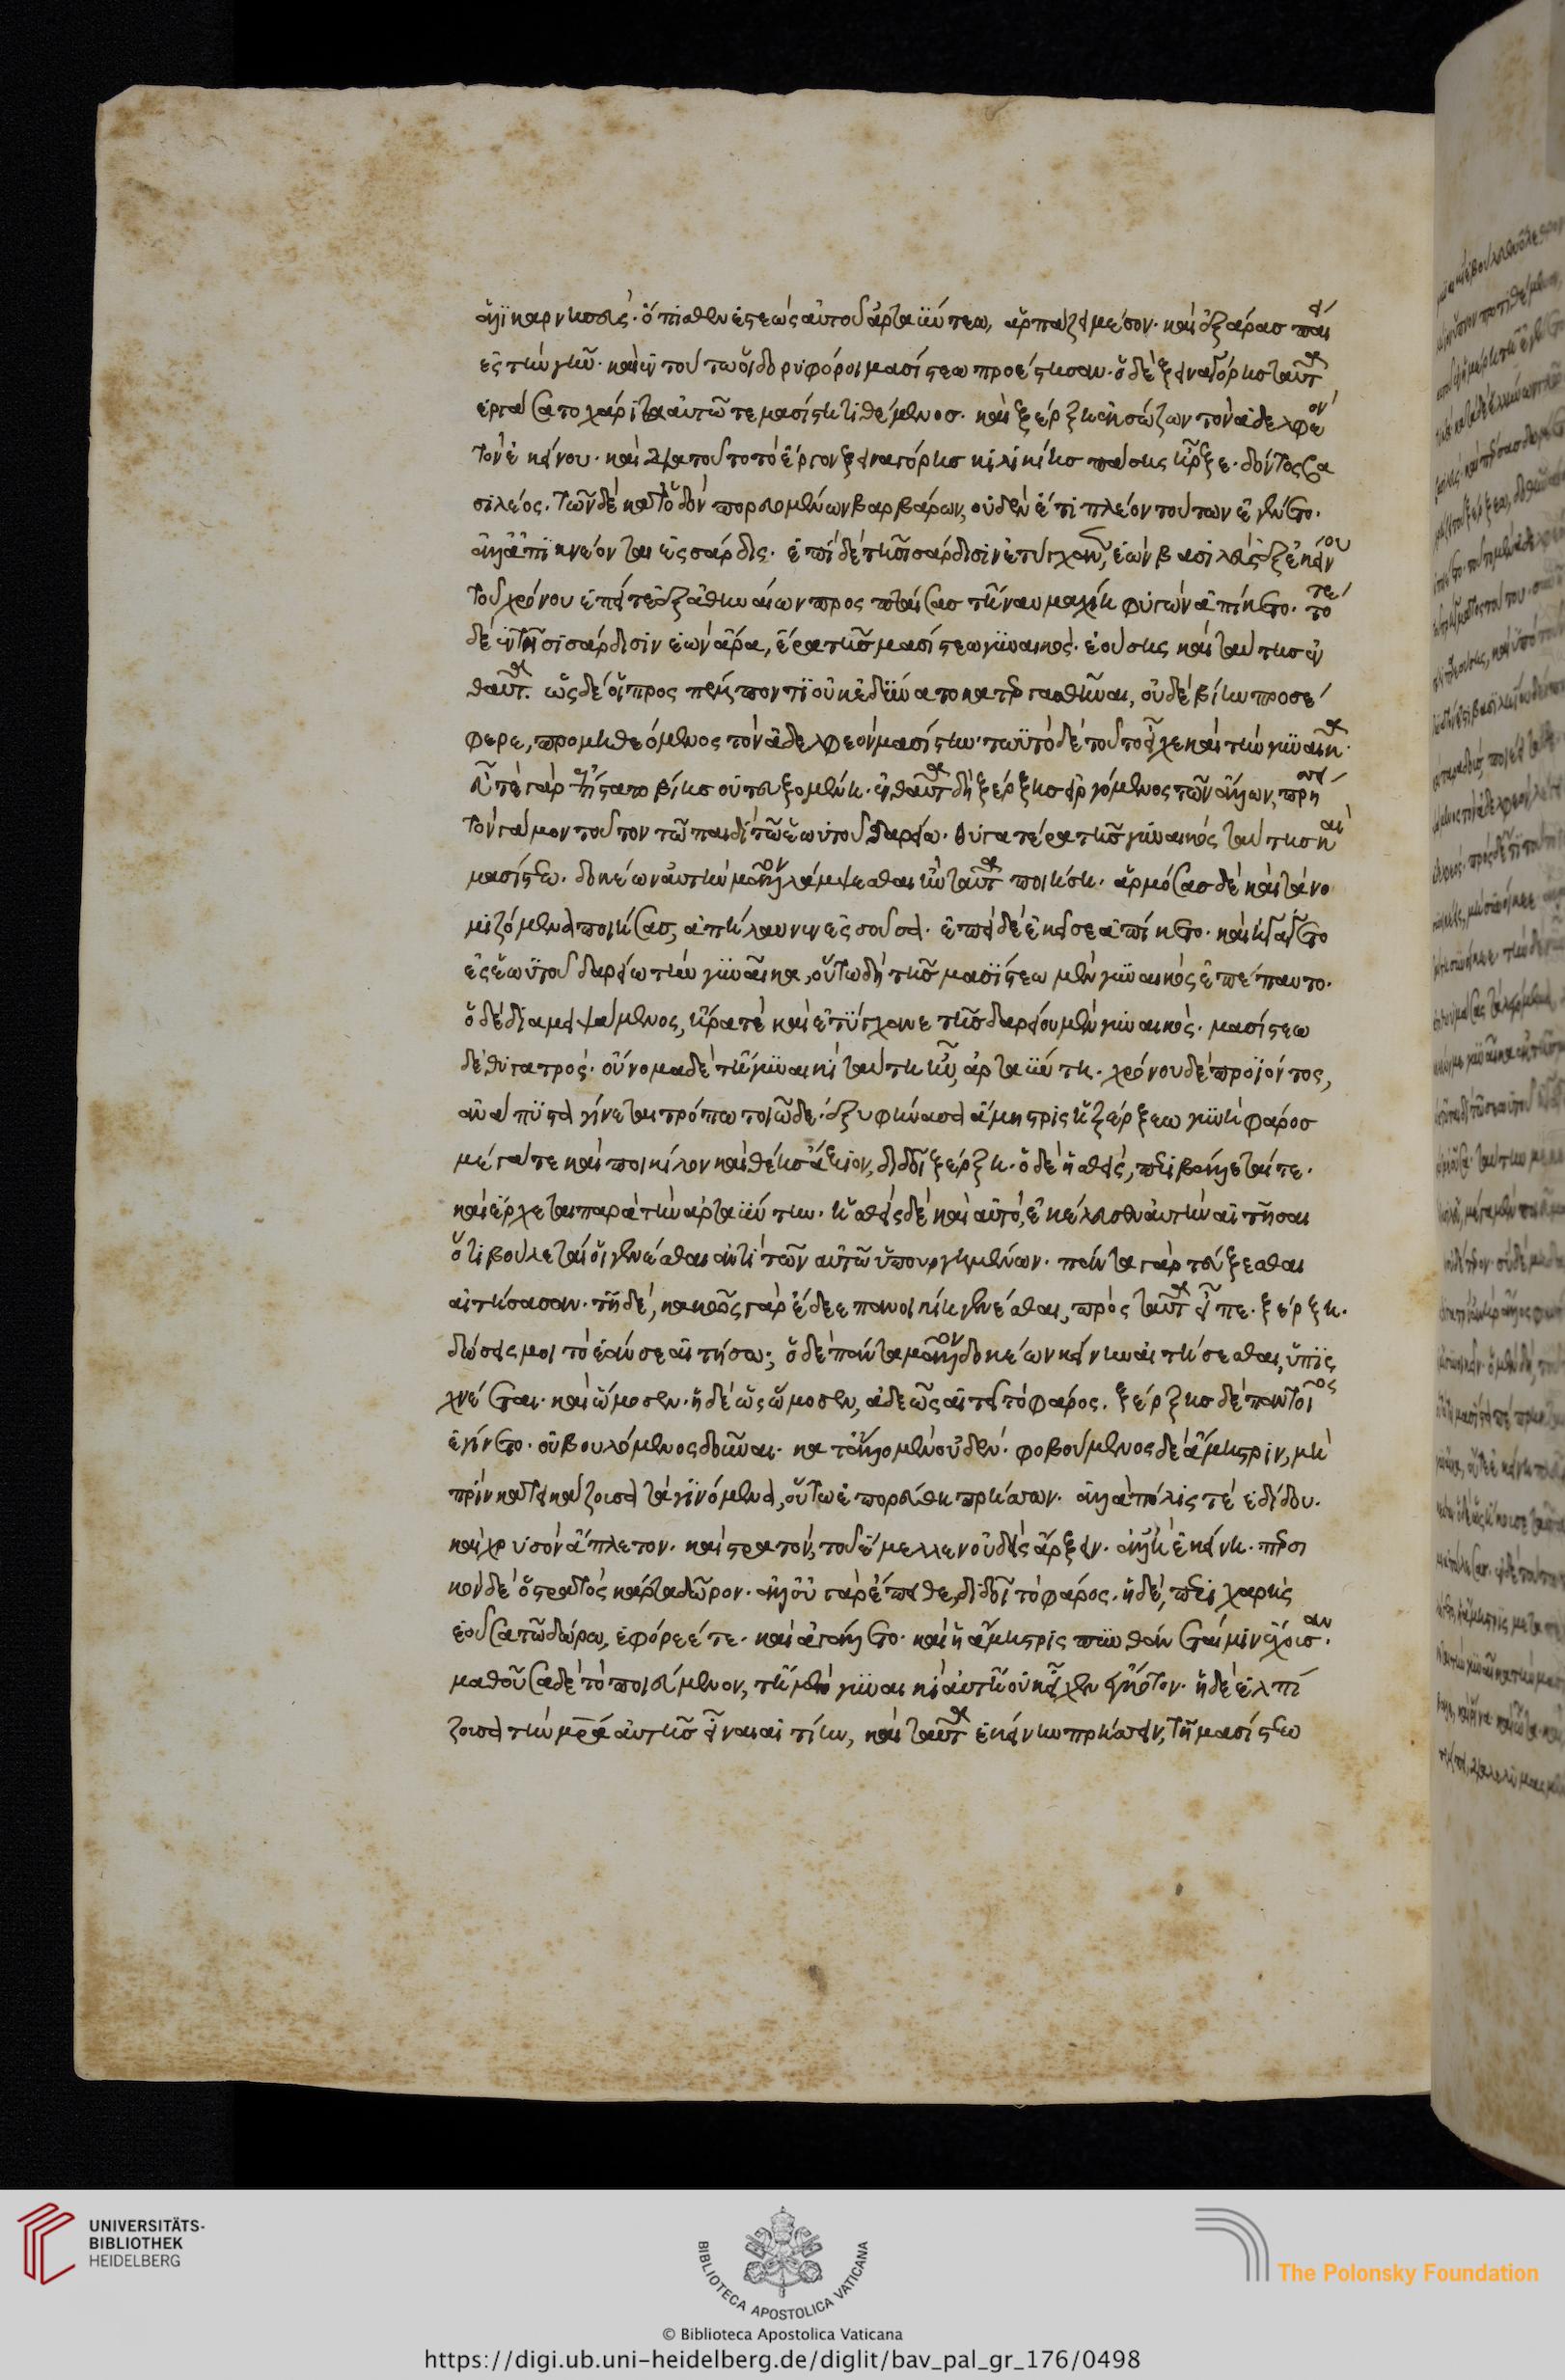 ἁλικαρνησσεύς· ὄπισθεν ἑστεὼς αὐτοῦ ἀρταΰντεω, ἁρπάζει μέσον· καὶ ἐξάρας παίει
ἐς τὴν γῆν· καὶ ἐν τούτω οἱ δορυφόροι μασίστεω προέστησαν· ὁ δὲ ξειναγόρης ταῦτα
ἐργάσατο χάριτα αὐτῶ τε μασίστη τιθέμενος· καὶ ξέρξη ἐκσώζων τὸν ἀδελφεὸν
τὸν ἐκείνου· καὶ διὰ τοῦτο τὸ ἔργον ξειναγόρης κιλικίης πάσης ἦρξε· δόντος βα
σιλέος. τῶν δὲ κατὰ ὁδὸν πορευομένων βαρβάρων, οὐδὲν ἔτι πλέον τούτων ἐγένετο·
ἀλλὰ ἀπικνέονται ἐς σάρδις. ἐπὶ δὲ τῆσι σάρδισιν ἐτύγχανε, ἐὼν βασιλεὺς ἐξ ἐκείνου
τοῦ χρόνου ἐπεί τε ἐξ ἀθηνέων προσπταίσας τῆ ναυμαχίη φυγὼν ἀπίκετο. τότε
δὲ ἐν τῆσι σάρδισιν ἐὼν ἄρα, ἤρα τῆς μασίστεω γυναικός· ἐούσης καὶ ταύτης ἐν
θαῦτα. ὡς δέ οἱ προσπέμποντι οὐκ ἐδύνατο κατεργασθῆναι, οὐδὲ βίην προσέ
φερε, προμηθεόμενος τὸν ἀδελφεὸν μασίστην· τὠυτὸ δὲ τοῦτο εἶχε καὶ τὴν γυναῖκα·
εὖ τε γὰρ ἠπίστατο βίης οὐ τευξομένη. ἐνθαῦτα δὴ ξέρξης εἰργόμενος τῶν ἄλλων, πρήσσει
τὸν γάμον τοῦτον τῶ παιδὶ τῶ ἑωυτοῦ δαρείω. θυγατέρα τῆς γυναικὸς ταύτης καὶ
μασίστεω. δοκέων αὐτὴν μᾶλλον λάμψεσθαι ἢν ταῦτα ποιήση. ἁρμόσας δὲ καὶ τὰ νο
μιζόμενα ποιήσας, ἀπήλαυνεν ἐς σοῦσα. ἐπεὶ δὲ ἐκεῖσε ἀπίκετο. καὶ ἠγάγετο
ἐς ἑωυτοῦ δαρείω τὴν γυναῖκα, οὕτω δὴ τῆς μασίστεω μὲν γυναικὸς ἐπέπαυτο·
ὁ δὲ διαμειψάμενος, ἤρα τε καὶ ἐτύγχανε τῆς δαρείου μὲν γυναικός. μασίστεω
δὲ θυγατρός· οὔνομα δὲ τῆ γυναικὶ ταύτη ἦν, ἀρταΰντη. χρόνου δὲ προϊόντος,
ἀνάπυστα γίνεται τρόπω τοιῶδε· ἐξυφήνασα ἄμηστρις ἡ ξέρξεω γυνὴ φάρος
μέγα τε καὶ ποικίλον καὶ θέης ἄξιον, διδοῖ ξέρξη. ὁ δὲ ἡσθεὶς, περιβάλλεταί τε·
καὶ ἔρχεται παρὰ τὴν ἀρταΰντην. ἡσθεὶς δὲ καὶ αὐτῆ, ἐκέλευσεν αὐτὴν αἰτῆσαι
ὅτι βούλεταί οἱ γενέσθαι ἀντὶ τῶν αὐτῶ ὑπουργημένων. πάντα γὰρ τεύξεσθαι
αἰτήσασαν. τῆ δὲ, κακῶς γὰρ ἔδεε πανοικίη γενέσθαι, πρὸς ταῦτα εἶπε. ξέρξη.
δώσεις μοι τὸ ἐάν σε αἰτήσω; ὁ δὲ πάντα μᾶλλον δοκέων κείνην αἰτήσεσθαι, ὑπισ
χνέεται. καὶ ὤμοσεν. ἡ δὲ ὡς ὤμοσεν, ἀδεῶς αἰτεῖ τὸ φάρος. ξέρξης δὲ παντοῖος
ἐγίνετο. οὐ βουλόμενος δοῦναι. κατ' ἄλλο μὲν οὐδέν· φοβούμενος δὲ ἄμηστριν, μὴ
πρὶν κατεικαζούση τὰ γινόμενα, οὕτω ἐπευρεθῆ πρήσσων. ἀλλὰ πόλις τε ἐδίδου.
καὶ χρυσὸν ἄπλετον. καὶ στρατὸν, τοῦ ἔμελλεν οὐδεὶς ἄρξειν. ἀλλ' ἢ ἐκείνη. περσι
κὸν δὲ ὁ στρατὸς κάρτα δῶρον. ἀλλ' οὐ γὰρ ἔπειθε, διδοῖ τὸ φάρος. ἡ δὲ, περιχαρὴς
ἐοῦσα τῶ δώρω, ἐφόρεέ τε. καὶ ἀγάλλετο. καὶ ἡ ἄμηστρις πυνθάνεταί μιν ἔχουσαν.
μαθοῦσα δὲ τὸ ποιεύμενον, τῆ μὲν γυναικὶ αὐτῆ οὐκ εἶχεν ἔγκοτον. ἡ δὲ ἐλπί
ζουσα τὴν μητέρα αὐτῆς εἶναι αἰτίην, καὶ ταῦτα ἐκείνην πρήσσειν, τῆ μασίστεω
UNIVERSITÄTS-
BIBLIOTHEK
HEIDELBERG
BIBLIOTECA APOSTOLICA VATICANA
The Polonsky Foundation
© Biblioteca Apostolica Vaticana
https://digi.ub.uni-heidelberg.de/diglit/bav_pal_gr_176/0498